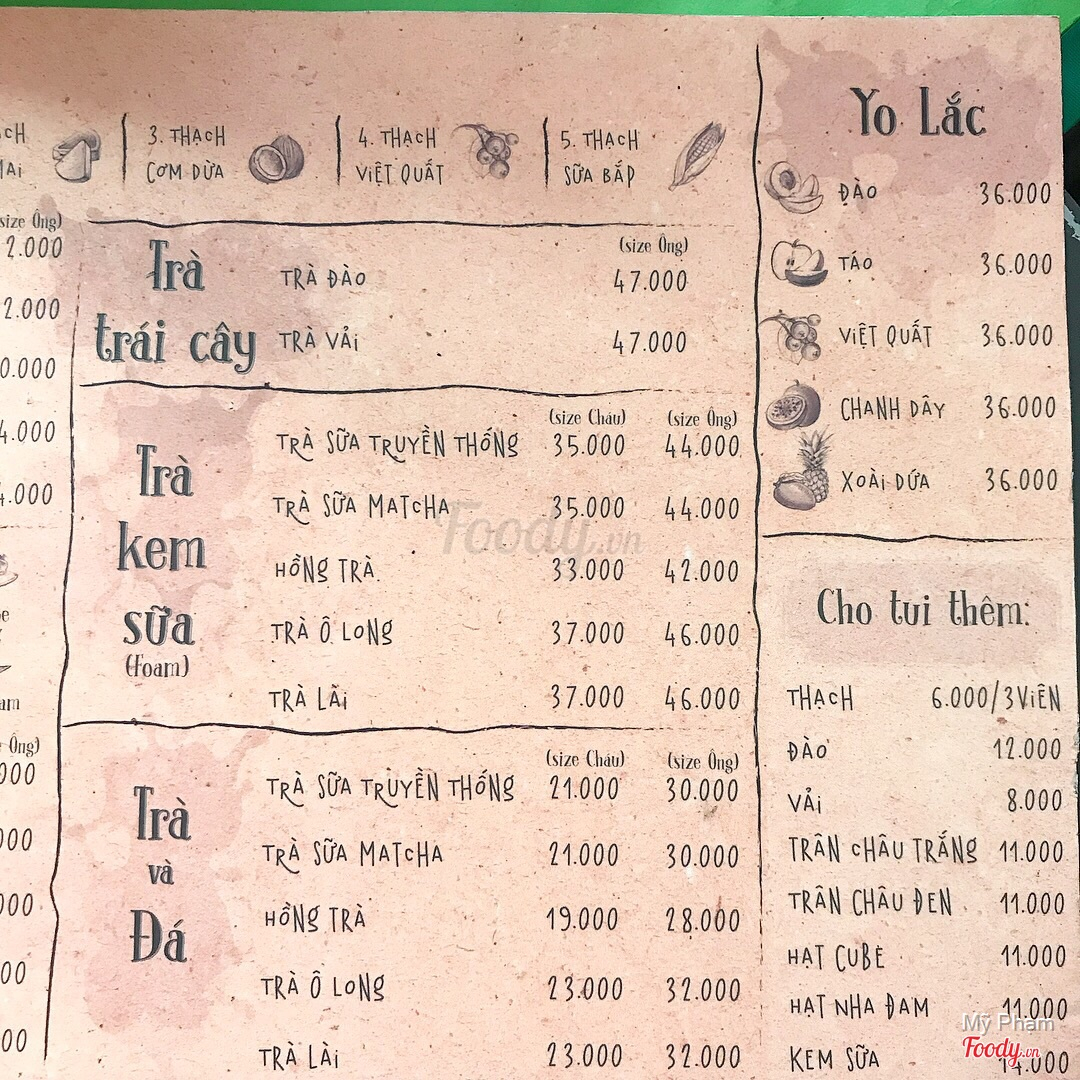 3. THẠCH
CƠM DỪA
4. THẠCH
VIỆT QUẤT
5. THẠCH
SỮA BẮP
(size Ông)
2.000
2.000
0.000
4.000
4.000
Ông)
000
Trà
trái cây
(size Ông)
TRÀ ĐÀO 47.000
TRÀ VẢI 47.000
Trà
kem
sữa
(Foam)
(size Cháu) (size Ông)
TRÀ SỮA TRUYỀN THỐNG 35.000 44.000
TRÀ SỮA MATCHA 35.000 44.000
HỒNG TRÀ 33.000 42.000
TRÀ Ô LONG 37.000 46.000
TRÀ LÀI 37.000 46.000
Trà
và
Đá
(size Cháu) (size Ông)
TRÀ SỮA TRUYỀN THỐNG 21.000 30.000
TRÀ SỮA MATCHA 21.000 30.000
HỒNG TRÀ 19.000 28.000
TRÀ Ô LONG 23.000 32.000
TRÀ LÀI 23.000 32.000
Yo Lắc
ĐÀO 36.000
TÁO 36.000
VIỆT QUẤT 36.000
CHANH DÂY 36.000
XOÀI DỨA 36.000
Cho tui thêm:
THẠCH 6.000/3VIÊN
ĐÀO 12.000
VẢI 8.000
TRÂN CHÂU TRẮNG 11.000
TRÂN CHÂU ĐEN 11.000
HẠT CUBE 11.000
HẠT NHA ĐAM 11.000
KEM SỮA 14.000
Foody.vn
Mỹ Phạm
Foody.vn